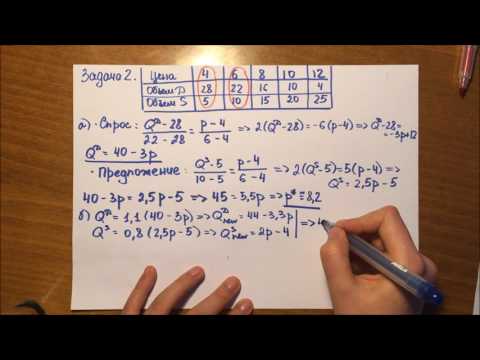 Задача 2.
Цена 4 6 8 10 12
Объем D 28 22 16 10 4
Объем S 5 10 15 20 25
а) · Спрос: (Q^D-28)/(22-28) = (p-4)/(6-4) => 2(Q^D-28)=-6(p-4) => Q^D-28=-3p+12
Q^D = 40-3p
· Предложение: (Q^S-5)/(10-5) = (p-4)/(6-4) => 2(Q^S-5)=5(p-4) => Q^S = 2,5p-5
40-3p = 2,5p-5 => 45 = 5,5p => p* = 8,2
б) Q^D = 1,1(40-3p) => Q^D new = 44-3,3p
Q^S = 0,8(2,5p-5) => Q^S new = 2p-4 | => 4